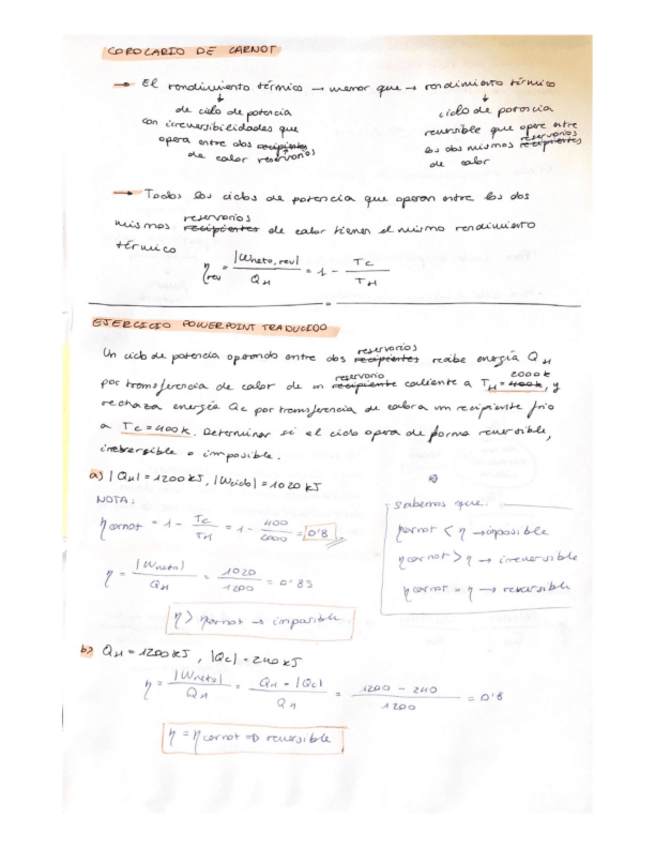 COROLARIO DE CARNOT
→ El rendimiento térmico → menor que → rendimiento térmico
↓
de ciclo de potencia
con irreversibilidades que
opera entre dos recipientes
reservorios
de calor
↓
ciclo de potencia
reversible que opere entre
reservorios
los dos mismos recipientes
de calor
→ Todos los ciclos de potencia que operan entre los dos
reservorios
mismos recipientes de calor tienen el mismo rendimiento
térmico
η rev = |Wneto, rev| / QH = 1 - TC / TH
EJERCICIO POWERPOINT TRADUCIDO
reservorios
Un ciclo de potencia operando entre dos recipientes recibe energía QH
reservorio 2000 K
por transferencia de calor de un recipiente caliente a TH = 400K, y
rechaza energía QC por transferencia de calor a un recipiente frío
a TC = 400K. Determinar si el ciclo opera de forma reversible,
irreversible o imposible.
a) |QH| = 1200 KJ, |Wciclo| = 1020 KJ
NOTA:
η carnot = 1 - TC / TH = 1 - 400 / 2000 = 0'8
η = |Wneto| / QH = 1020 / 1200 = 0'85
η > η carnot → imposible.
sabemos que:
η carnot < η → imposible
η carnot > η → irreversible
η carnot = η → reversible
b) QH = 1200 KJ, |QC| = 240 KJ
η = |Wneto| / QH = QH - |QC| / QH = 1200 - 240 / 1200 = 0'8
η = η carnot ⇒ reversible